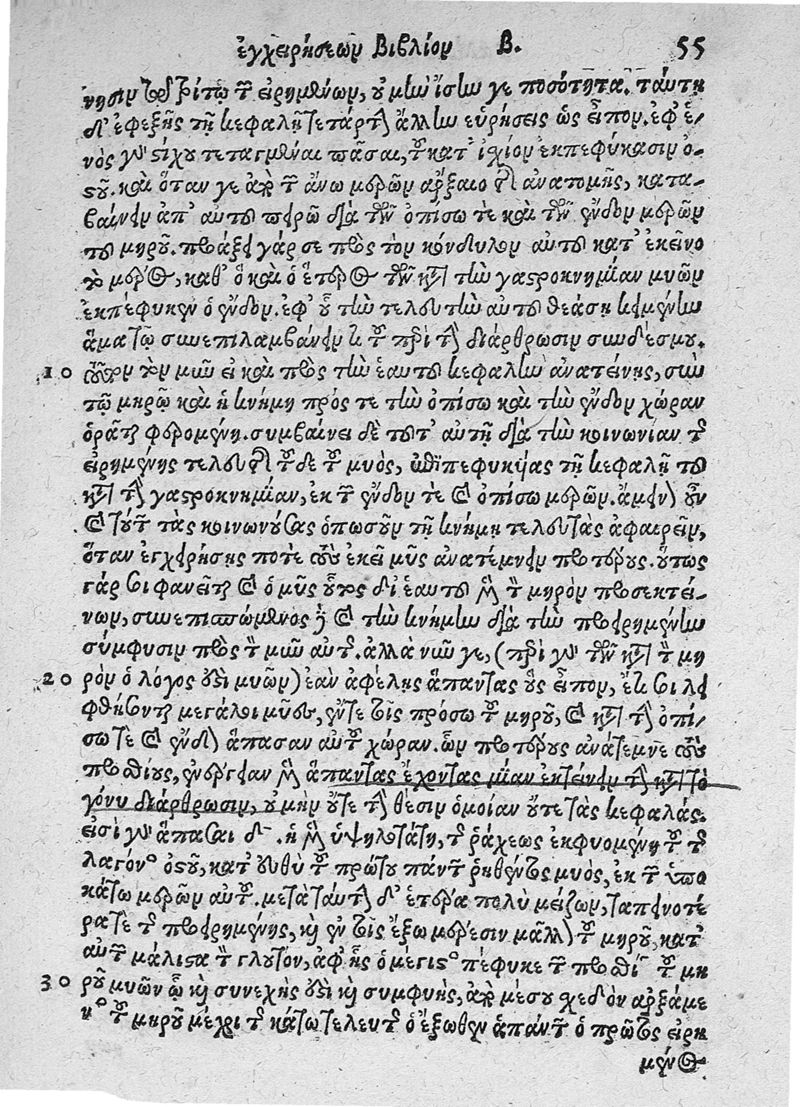 ἐγχειρήσεων Βιβλίον Β. 55
νησιν τῷ τρίτῳ τῶν εἰρημένων, οὐ μὴν ἴσην γε ποσότητα. ταύτῃ
δ' ἐφεξῆς τῇ κεφαλῇ τετάρτην ἄλλην εὑρήσεις ὡς εἶπον. ἐφ' ἑ-
νὸς γὰρ στίχου τεταγμέναι πᾶσαι, τοῦ κατ' ἰσχίον ἐκπεφύκασιν ὀ-
στοῦ. καὶ ὅταν γε ἀπὸ τῶν ἄνω μερῶν ἄρξαιο τῆς ἀνατομῆς, κατα-
βαίνειν ἀπ' αὐτοῦ πειρῶ διὰ τῶν ὀπίσω τε καὶ τῶν ἔνδον μερῶν
τοῦ μηροῦ. παράξει γάρ σε πρὸς τὸν κόνδυλον αὐτοῦ κατ' ἐκεῖνο
τὸ μέρος, καθ' ὃ καὶ ὁ ἕτερος τῶν κατὰ τὴν γαστροκνημίαν μυῶν
ἐκπέφυκεν ὁ ἔνδον. ἐφ' οὗ τὴν τελουτὴν αὐτοῦ θεάσῃ κειμένην
ἅμα τῷ συνεπιλαμβάνειν τι τοῦ περὶ τὴν διάρθρωσιν συνδέσμου.
10 τοῦτον τὸν μῦν εἰ καὶ πρὸς τὴν ἑαυτοῦ κεφαλὴν ἀνατείνῃς, σὺν
τῷ μηρῷ καὶ ἡ κνήμη πρός τε τὴν ὀπίσω καὶ τὴν ἔνδον χώραν
ὁρᾶται φερομένη. συμβαίνει δὲ τοῦτ' αὐτῇ διὰ τὴν κοινωνίαν τῆς
εἰρημένης τελευτῆς τοῦδε τοῦ μυὸς, ἐπιπεφυκυίας τῇ κεφαλῇ τοῦ
κατὰ τὴν γαστροκνημίαν, ἐκ τῶν ἔνδον τε καὶ ὀπίσω μερῶν. ἄμεινον οὖν
καὶ τούτων τὰς κοινωνούσας ὁπωσοῦν τῇ κνήμῃ τελευτὰς ἀφαιρεῖν,
ὅταν ἐγχειρήσῃς ποτὲ τοὺς ἐκεῖ μῦς ἀνατέμνειν προτέρους. οὕτως
γάρ σοι φανεῖται καὶ ὁ μῦς οὗτος δι' ἑαυτοῦ μὲν τὸν μηρὸν προσεκτεί-
νων, συνεπισπώμενος δὲ καὶ τὴν κνήμην διὰ τὴν προειρημένην
σύμφυσιν πρὸς τὸν μῦν αὐτῆς. ἀλλὰ νῦν γε, (περὶ γὰρ τῶν κατὰ τὸν μη
20 ρὸν ὁ λόγος ἐστὶ μυῶν) ἐὰν ἀφέλῃς ἅπαντας οὓς εἶπον, ἔτι σοι λει
φθήσονται μεγάλοι μῦες, ἔν τε τοῖς πρόσω τοῦ μηροῦ, καὶ κατὰ τὴν ὀπί-
σω τε καὶ ἔνδον ἅπασαν αὐτοῦ χώραν. ὧν προτέρους ἀνάτεμνε τοὺς
προσθίους, ἐνέργειαν μὲν ἅπαντας ἔχοντας μίαν ἐκτείνειν τὴν κατὰ τὸ
γόνυ διάρθρωσιν, οὐ μὴν οὔτε τὴν θέσιν ὁμοίαν οὔτε τὰς κεφαλάς.
εἰσὶ γὰρ ἅπασαι δ̄. ἡ μὲν ὑψηλοτάτη, τῆς ῥάχεως ἐκφυομένη τοῦ τῆς
λαγόνος ὀστοῦ, κατ' εὐθὺ τοῦ πρώτου πάντων ῥηθέντος μυὸς, ἐκ τῶν ὑπο
κάτω μερῶν αὐτοῦ. μετὰ ταύτην δ' ἑτέρα πολὺ μείζων, ταπεινοτέ
ρα τε τῆς προειρημένης, καὶ ἐν τοῖς ἔξω μέρεσιν μᾶλλον τοῦ μηροῦ, κατ'
αὐτὸν μάλιστα τὸν γλουτὸν, ἀφ' ἧς ὁ μέγιστος πέφυκε τῶν προσθίων τοῦ μη
30 ροῦ μυῶν ᾧ καὶ συνεχής ἐστι καὶ συμφυὴς, ἀπὸ μέσου σχεδὸν ἀρξάμε
νος τοῦ μηροῦ μέχρι τῆς κάτω τελευτῆς ὁ ἔξωθεν ἁπάντων ὁ πρῶτος εἰρη
μένος